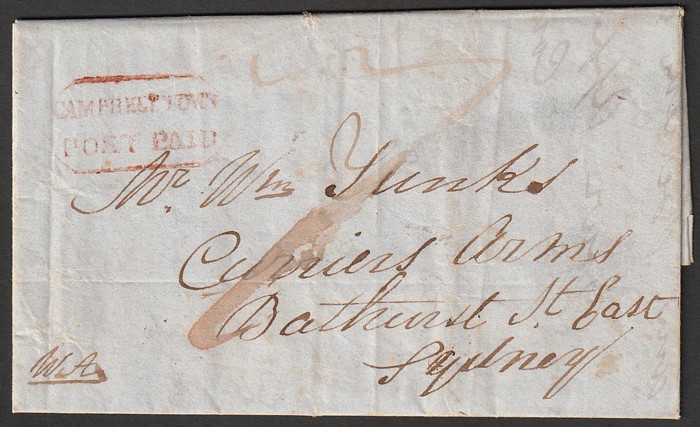 CAMPBELLTOWN
POST PAID
Mr. Wm Junks
Curriers Arms
Bathurst St. East
Sydney
W.A.